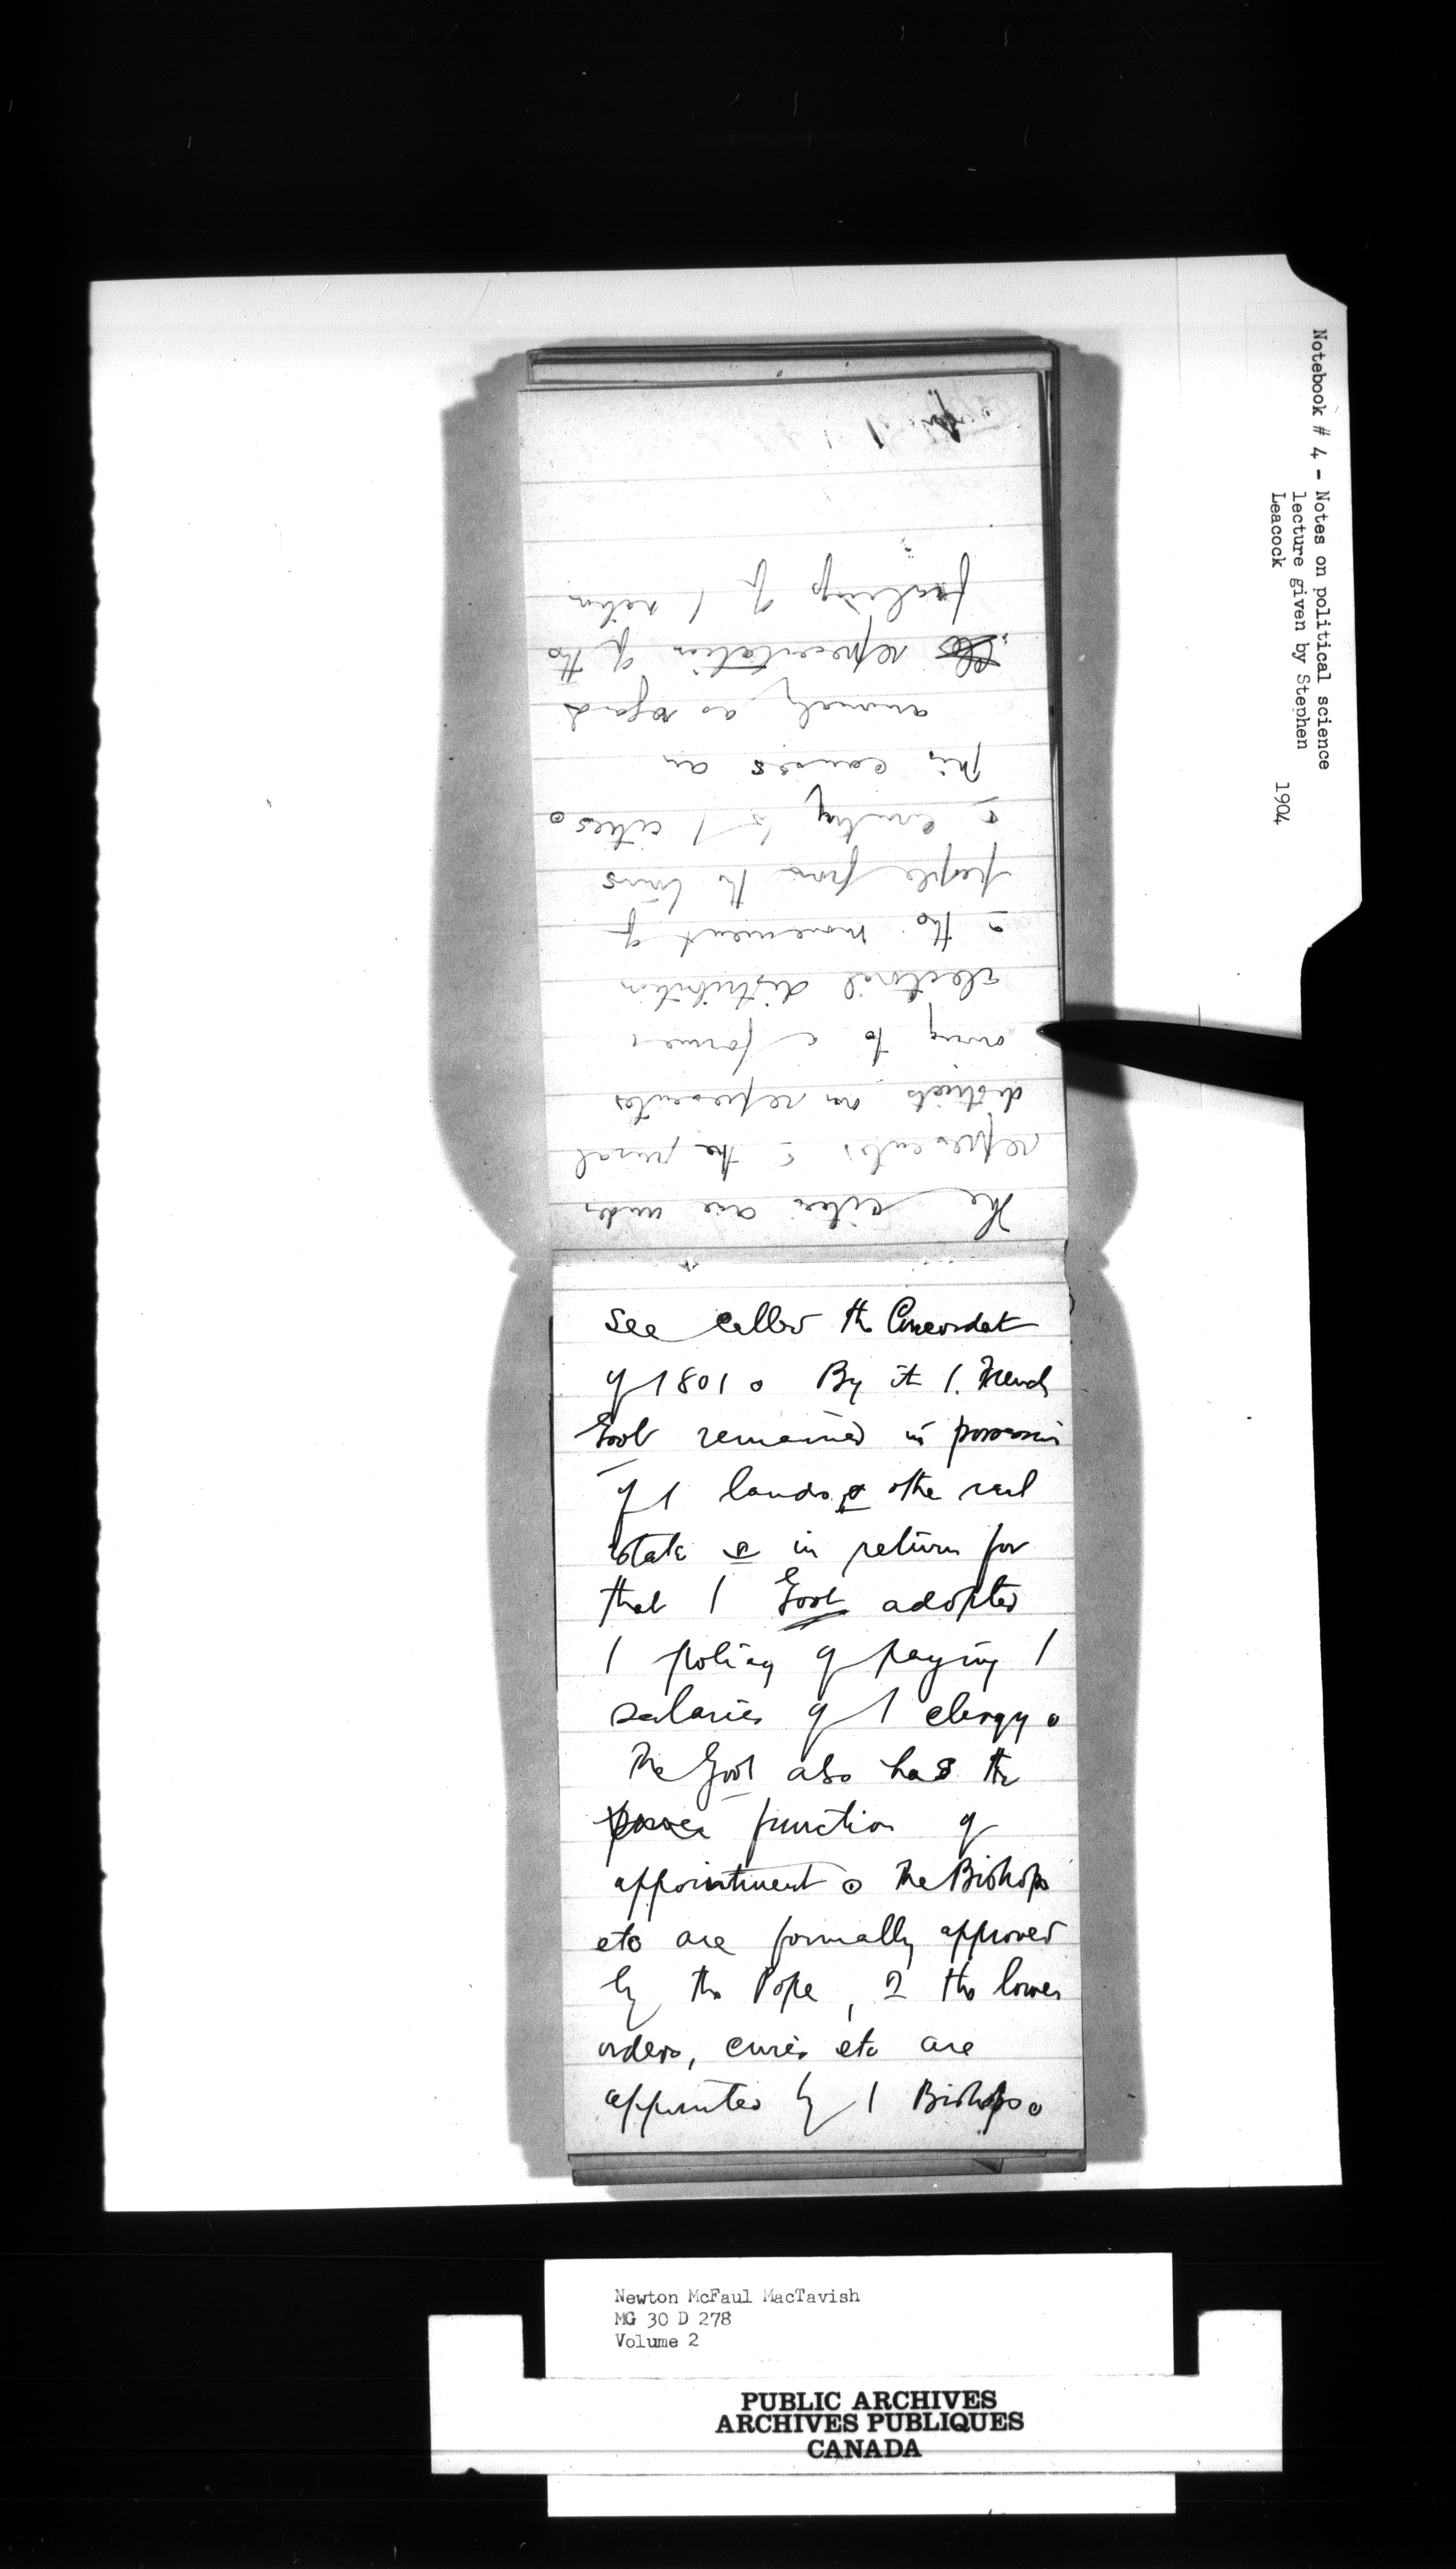 Notebook # 4 - Notes on political science
lecture given by Stephen
Leacock 1904
The cities are under
represented & the rural
districts over represented
owing to a former
electoral distribution
& the movement of
people from the towns
& country to / cities.
This causes an
anomaly as regards
representation of the
feelings of / nation
See called the Concordat
of 1801. By it /. French
Govt remained in possession
of / lands & other real
estate & in return for
that / Govt adopted
/ policy of paying /
salaries of / clergy.
The Govt also has the
power function of
appointment. The Bishops
etc are formally approved
by the Pope, & the lower
orders, curés etc are
appointed by / Bishops.
Newton McFaul MacTavish
MG 30 D 278
Volume 2
PUBLIC ARCHIVES
ARCHIVES PUBLIQUES
CANADA